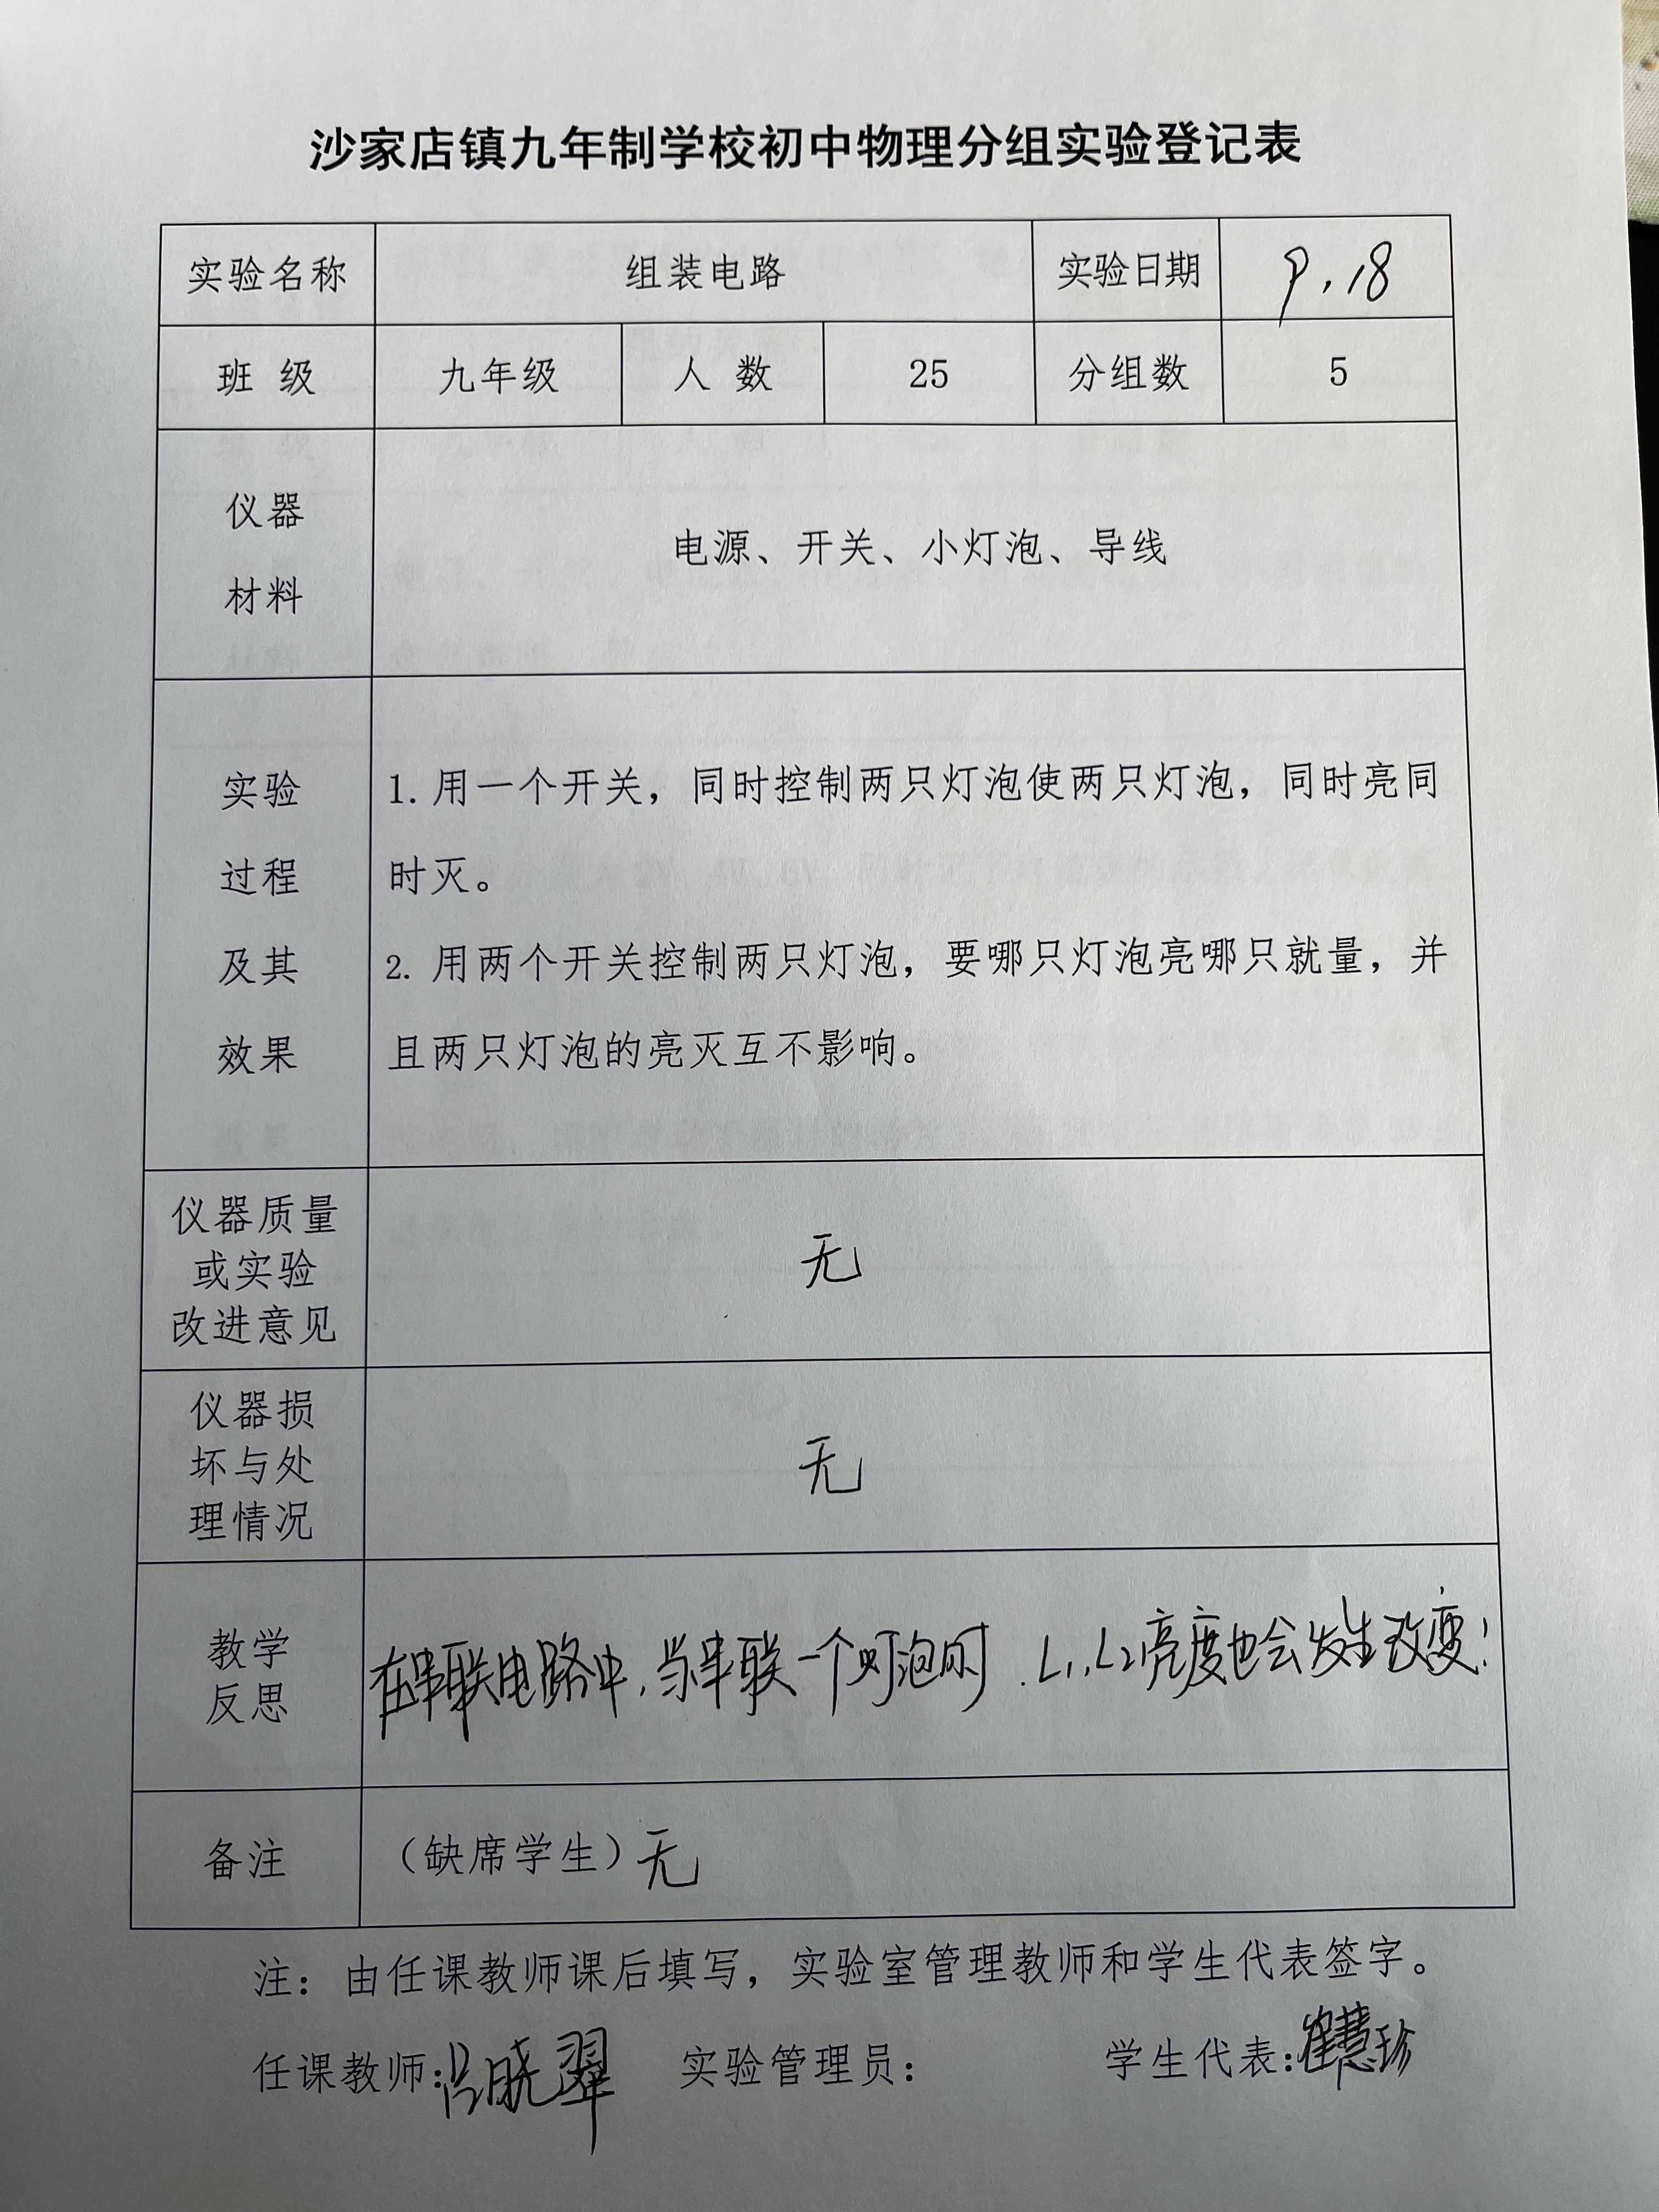 沙家店镇九年制学校初中物理分组实验登记表
实验名称 组装电路 实验日期 9.18
班 级 九年级 人 数 25 分组数 5
仪器
材料
电源、开关、小灯泡、导线
实验
过程
及其
效果
1. 用一个开关，同时控制两只灯泡使两只灯泡，同时亮同
时灭。
2. 用两个开关控制两只灯泡，要哪只灯泡亮哪只就量，并
且两只灯泡的亮灭互不影响。
仪器质量
或实验
改进意见
无
仪器损
坏与处
理情况
无
教学
反思
在串联电路中，当串联一个灯泡时．L1，L2亮度也会发生改变！
备注 （缺席学生）无
注：由任课教师课后填写，实验室管理教师和学生代表签字。
任课教师：吕晓翠 实验管理员： 学生代表：崔慧珍